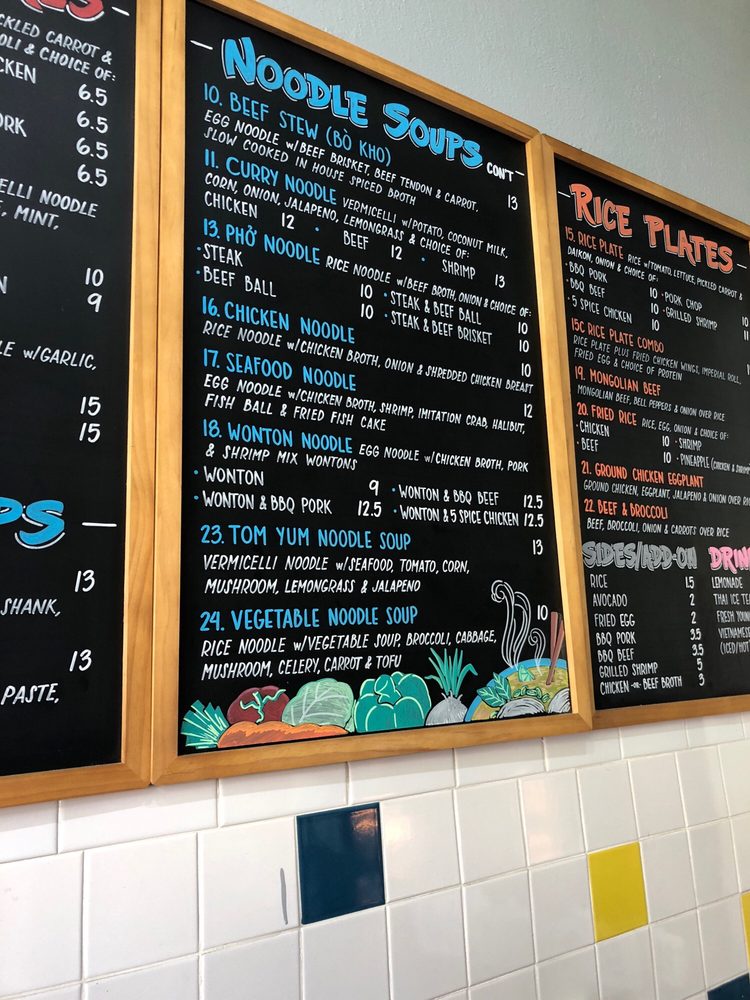 CKLED CARROT &
OLI & CHOICE OF:
CKEN 6.5
6.5
ORK 6.5
6.5
CELLI NOODLE
E, MINT,
10
N 9
LE w/GARLIC,
15
15
PS
13
SHANK,
13
PASTE,
NOODLE SOUPS CON'T
10. BEEF STEW (BÒ KHO)
EGG NOODLE w/BEEF BRISKET, BEEF TENDON & CARROT, 13
SLOW COOKED IN HOUSE SPICED BROTH
11. CURRY NOODLE VERMICELLI w/POTATO, COCONUT MILK,
CORN, ONION, JALAPENO, LEMONGRASS & CHOICE OF:
CHICKEN 12 • BEEF 12 • SHRIMP 13
13. PHỞ NOODLE RICE NOODLE w/BEEF BROTH, ONION & CHOICE OF:
• STEAK 10 • STEAK & BEEF BALL 10
• BEEF BALL 10 • STEAK & BEEF BRISKET 10
16. CHICKEN NOODLE 10
RICE NOODLE w/CHICKEN BROTH, ONION & SHREDDED CHICKEN BREAST
17. SEAFOOD NOODLE 12
EGG NOODLE w/CHICKEN BROTH, SHRIMP, IMITATION CRAB, HALIBUT,
FISH BALL & FRIED FISH CAKE
18. WONTON NOODLE EGG NOODLE w/CHICKEN BROTH, PORK
& SHRIMP MIX WONTONS
• WONTON 9 • WONTON & BBQ BEEF 12.5
• WONTON & BBQ PORK 12.5 • WONTON & 5 SPICE CHICKEN 12.5
23. TOM YUM NOODLE SOUP 13
VERMICELLI NOODLE w/SEAFOOD, TOMATO, CORN,
MUSHROOM, LEMONGRASS & JALAPENO
24. VEGETABLE NOODLE SOUP 10
RICE NOODLE w/VEGETABLE SOUP, BROCCOLI, CABBAGE,
MUSHROOM, CELERY, CARROT & TOFU
RICE PLATES
15. RICE PLATE RICE w/TOMATO, LETTUCE, PICKLED CARROT &
DAIKON, ONION & CHOICE OF:
• BBQ PORK 10 • PORK CHOP 10
• BBQ BEEF 10 • GRILLED SHRIMP
• 5 SPICE CHICKEN 10
15C RICE PLATE COMBO
RICE PLATE PLUS FRIED CHICKEN WINGS, IMPERIAL ROLL,
FRIED EGG & CHOICE OF PROTEIN
19. MONGOLIAN BEEF
MONGOLIAN BEEF, BELL PEPPERS & ONION OVER RICE
20. FRIED RICE RICE, EGG, ONION & CHOICE OF:
• CHICKEN 10 • SHRIMP
• BEEF 10 • PINEAPPLE (CHICKEN & SHRIMP
21. GROUND CHICKEN EGGPLANT
GROUND CHICKEN, EGGPLANT, JALAPENO & ONION OVER RICE
22 BEEF & BROCCOLI
BEEF, BROCCOLI, ONION & CARROTS OVER RICE
SIDES/ADD-ON
RICE 1.5
AVOCADO 2
FRIED EGG 2
BBQ PORK 3.5
BBQ BEEF 3.5
GRILLED SHRIMP 5
CHICKEN -OR- BEEF BROTH 3
DRIN
LEMONADE
THAI ICE TEA
FRESH YOUN
VIETNAMES
(ICED/HOT